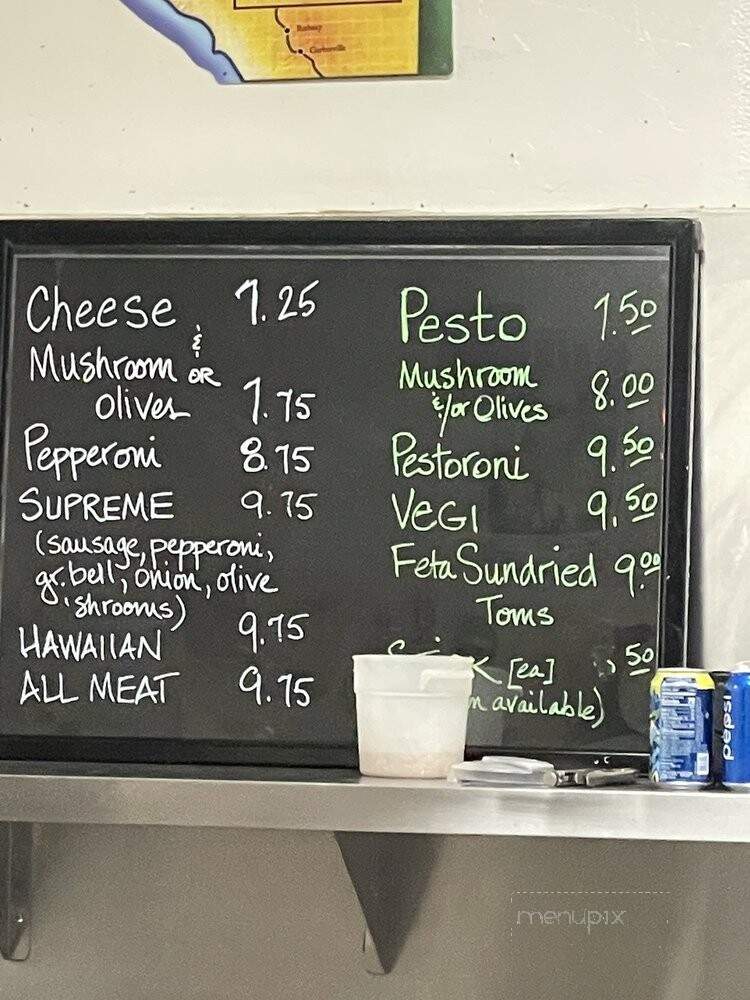 Cheese 7.25
Mushroom & OR
olives 7.75
Pepperoni 8.75
SUPREME 9.75
(sausage, pepperoni,
gr. bell, onion, olive
'shrooms)
HAWAIIAN 9.75
ALL MEAT 9.75
Pesto 7.50
Mushroom
&/or Olives 8.00
Pestoroni 9.50
VEGI 9.50
Feta Sundried 9.00
Toms
[ea] .50
available)
pepsi
menupix